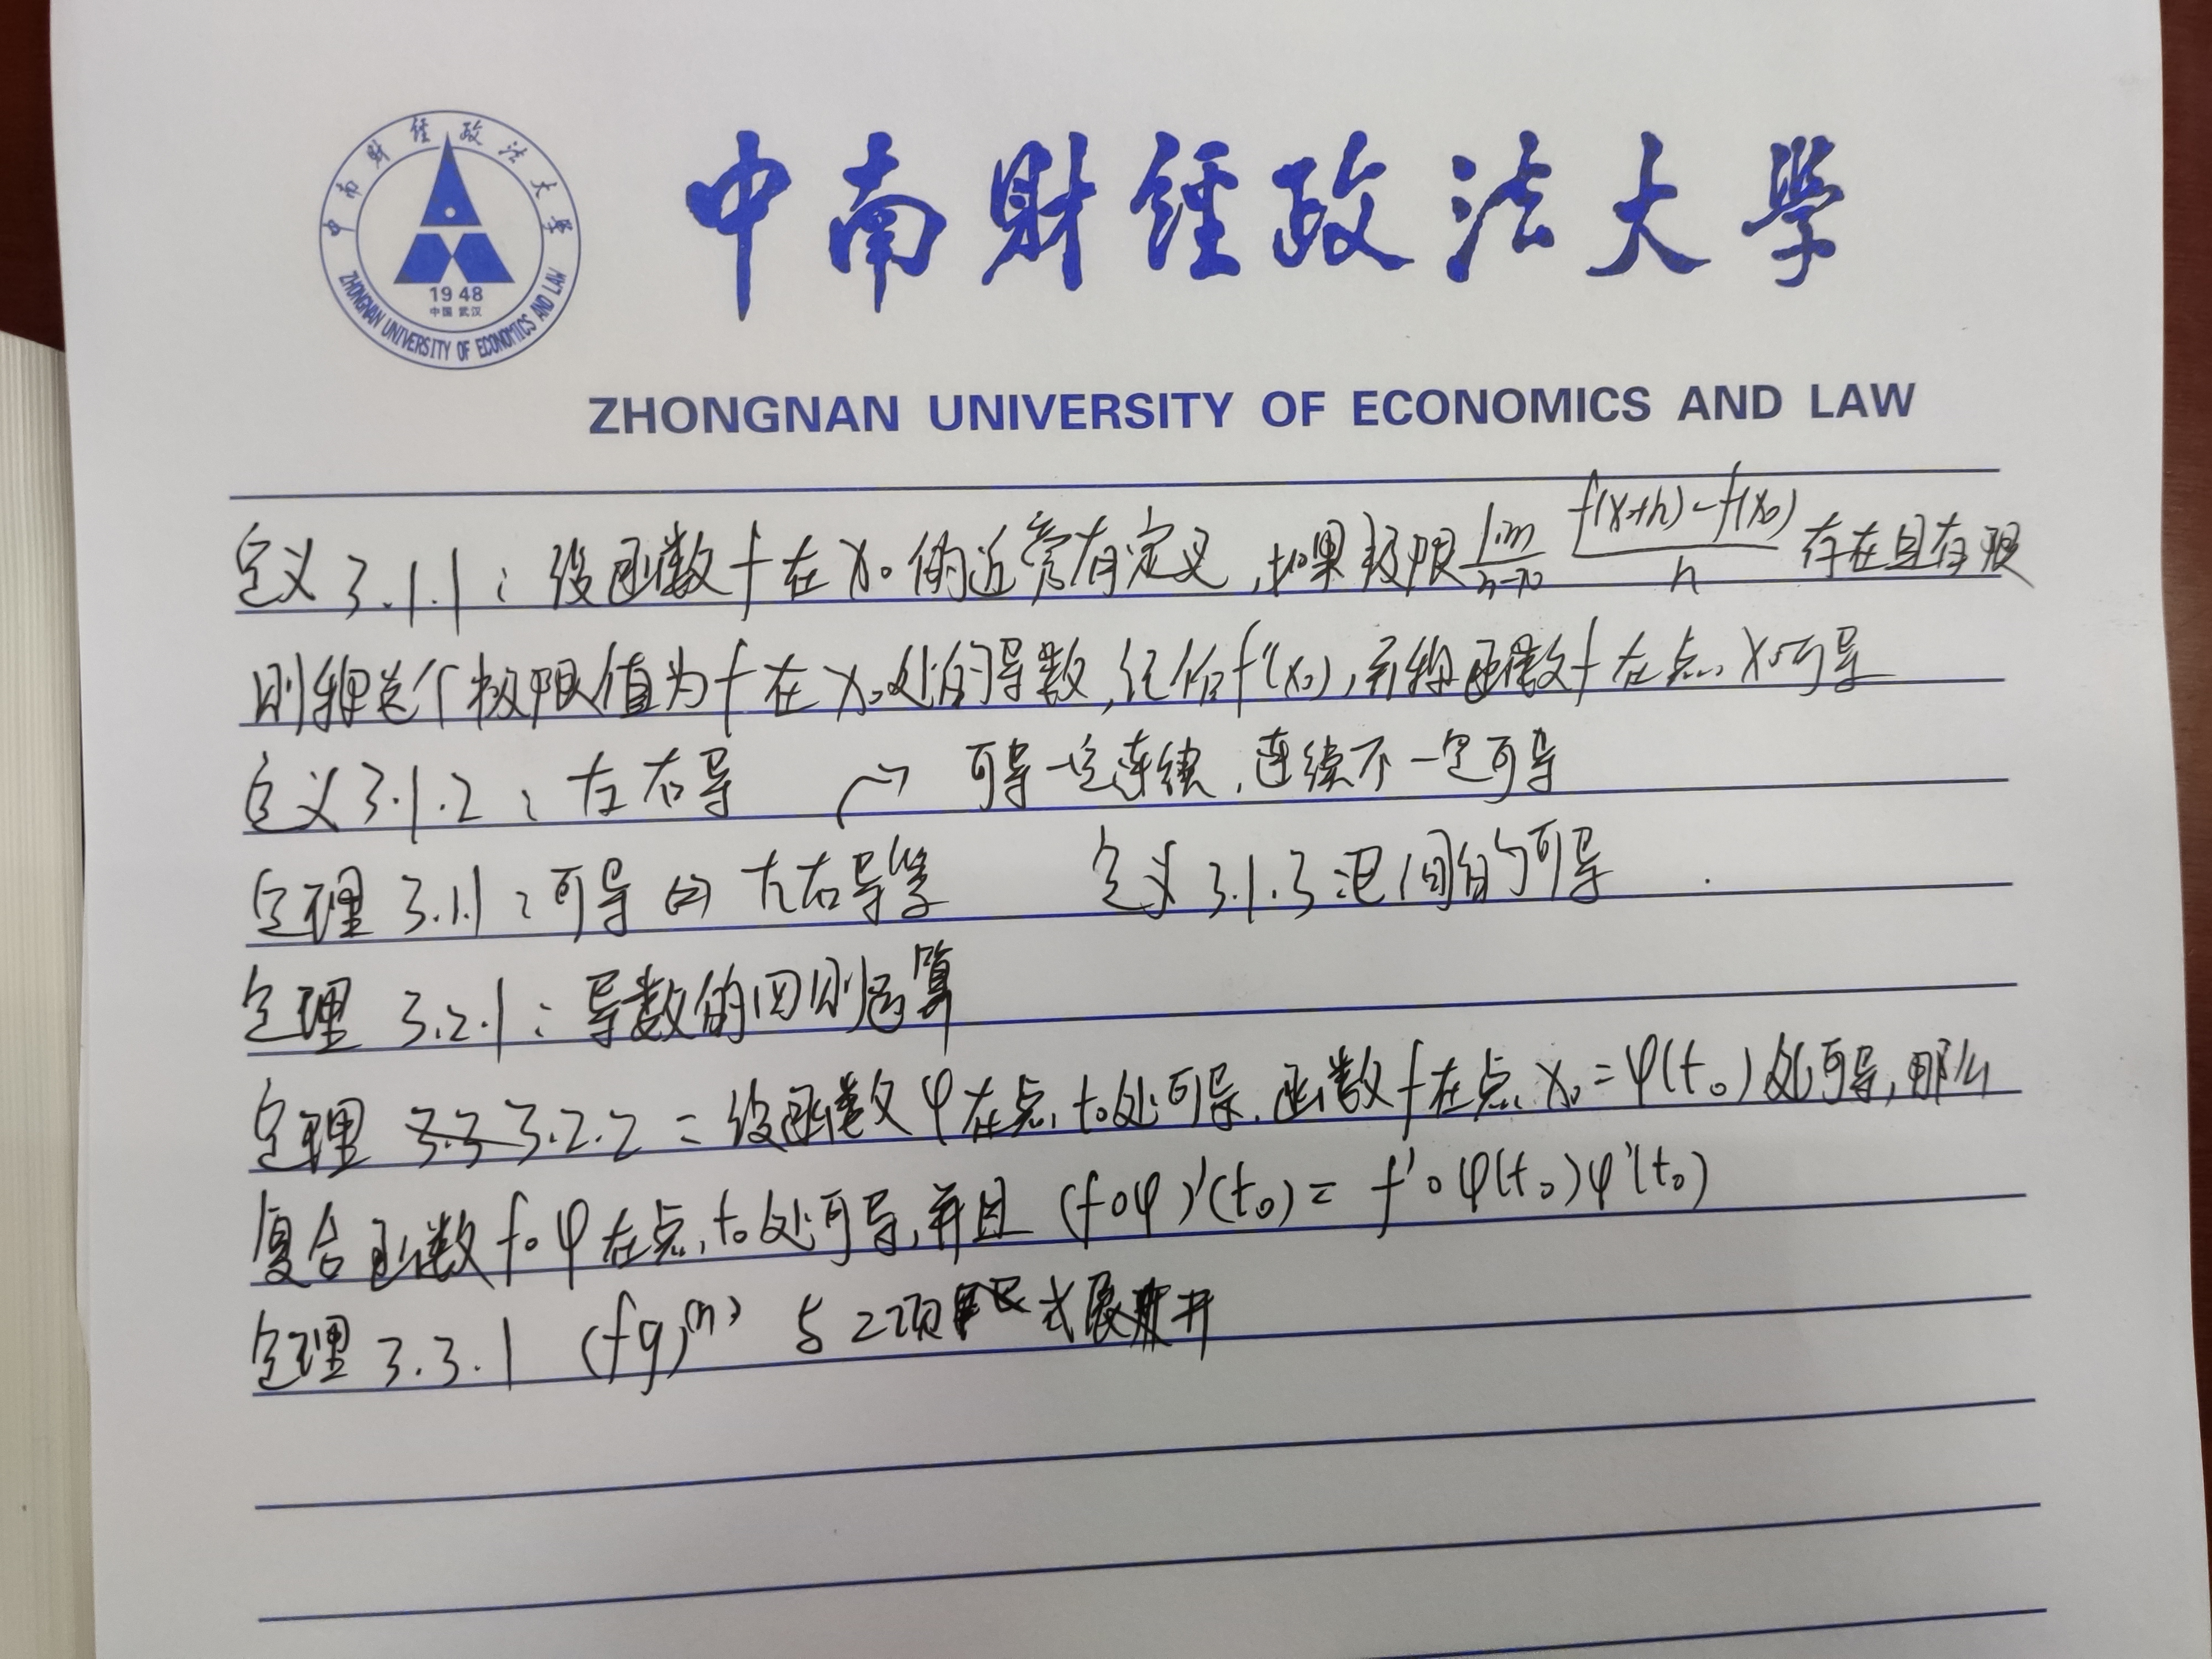 中南财经政法大学
1948
中国 武汉
ZHONGNAN UNIVERSITY OF ECONOMICS AND LAW
中南财经政法大学
ZHONGNAN UNIVERSITY OF ECONOMICS AND LAW
定义3.1.1：设函数f在x₀的近旁有定义，如果极限lim h→0 f(x+h)-f(x₀)/h 存在且有限
则称这个极限值为f在x₀处的导数，记作f'(x₀)，并称函数f在点x₀可导
定义3.1.2：左右导 → 可导一定连续，连续不一定可导
定理3.1.1：可导⇔左右导 定义3.1.3：区间的可导
定理3.2.1：导数的四则运算
定理 3.3 3.2.2：设函数φ在点t₀处可导，函数f在点x₀=φ(t₀)处可导，那么
复合函数f∘φ在点t₀处可导，并且 (f∘φ)'(t₀)=f'∘φ(t₀)φ'(t₀)
定理3.3.1 (fg)⁽ⁿ⁾ 与2项式展开